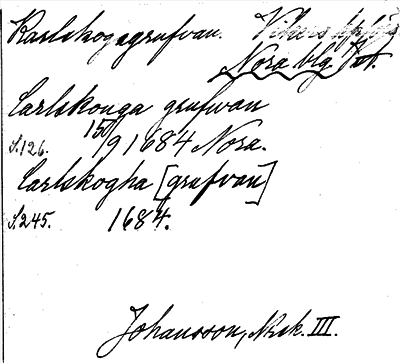 Karlskogagrufvan. Vikers kpllg
Nora blg Vst.
Carlskouga grufwan
S.126. 15/9 1684 Nora.
Carlskogha [grufvan]
S.245. 1684.
Johansson, Nbsk. III.